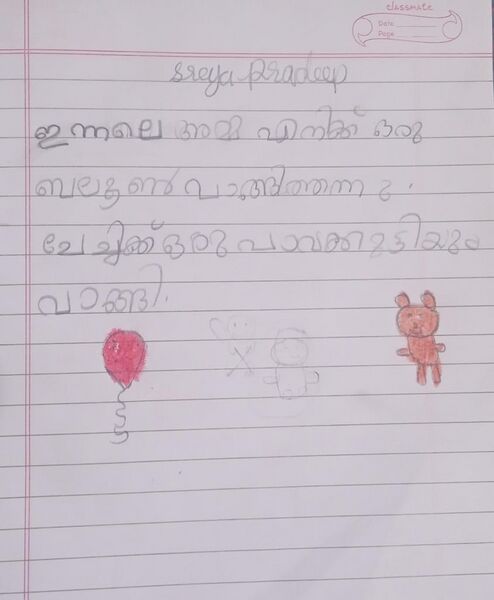 classmate
Date
Page
sreya pradeep
ഇന്നലെ അമ്മ എനിക്ക് ഒരു
ബലൂൺ വാങ്ങിത്തന്നു.
ചേച്ചിക്ക് ഒരു പാവക്കുട്ടിയും
വാങ്ങി.